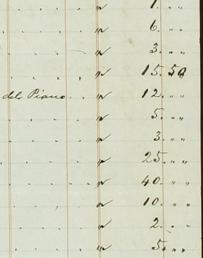 " 1. " "
" 6. " "
" 3. " "
" 15. 50
del Piano . . " 12. " "
" 5. " "
" 3. " "
" 25. " "
" 40. " "
" 10. " "
" 2. " "
" 5. " "